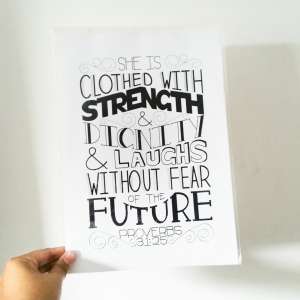 SHE IS
CLOTHED WITH
STRENGTH
&
DIGNITY
& LAUGHS
WITHOUT FEAR
OF THE
FUTURE
PROVERBS
31:25